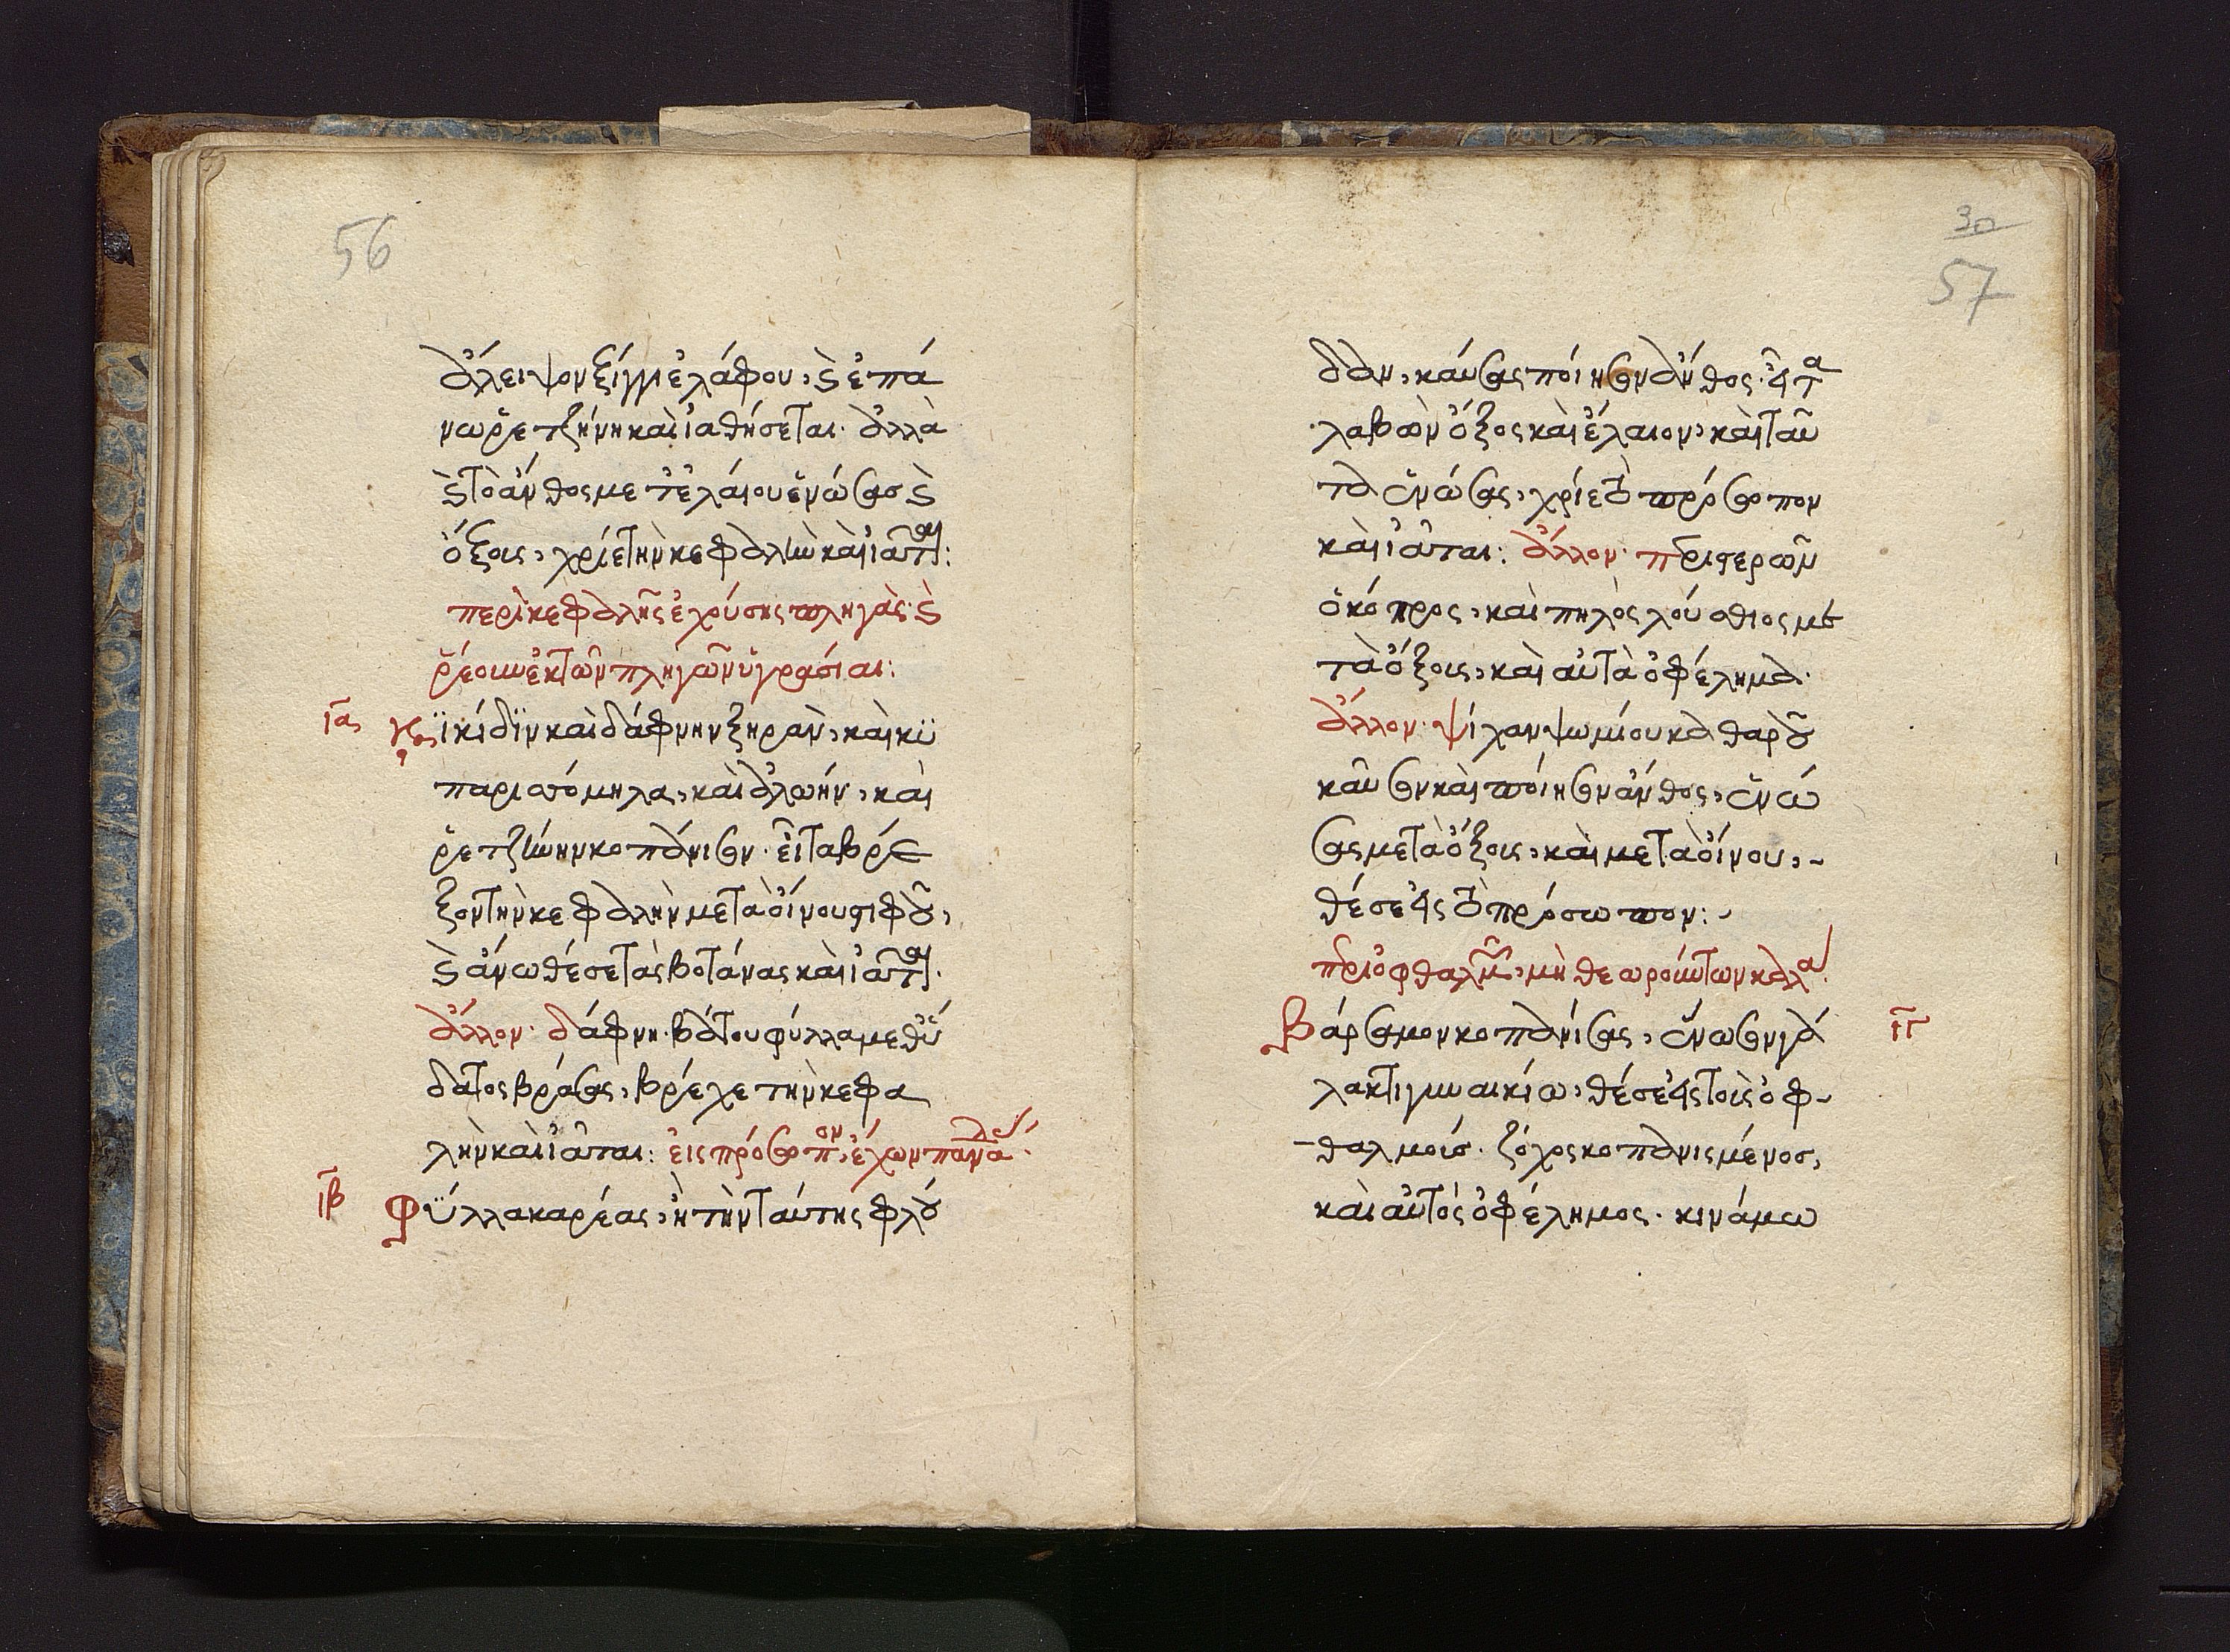 56
ἄλειψον ξίγγι ἐλάφου, ϗ ἐπά
νω ῥετζήνη καὶ ἰαθήσεται. ἀλλὰ
ϗ τὸ ἄνθος με τ' ἐλάιου ἑνώσας ϗ
ὄξους, χρίε τὴν κεφαλὴν καὶ ἰᾶται:
περὶ κεφαλῆς ἐχούσης πληγὰς. ϗ
ῥέουν ἐκ τῶν πληγῶν ὑγρασίαι:
ια κϊκίδϊν καὶ δάφνην ξηρὰν, καὶ κϋ
παρισόμηλα, καὶ ἀλοήν, καὶ
ῥετζήνην κοπάνισον. εἶτα βρέ
ξον τὴν κεφαλὴν μετὰ οἴνου στιφοῦ,
ϗ ἄνω θέσε τὰς βοτάνας καὶ ἰᾶται.
ἄλλον. δάφνη. βάτου φύλλα μεθ' ὕ
δατος βράσας, βρέχε τὴν κεφα
λὴν καὶ ἰᾶται: εἰς πρόσοπον, ἔχων πανάδ
ιβ Φϋλλα καρέας, ἢ τὴν ταύτης φλού
30
57
δαν, καύσας ποίησον ἄνθος. εἶτα
λαβὼν ὄξος καὶ ἔλαιον, καὶ ταῦ
τα ἑνώσας, χρίε τὸ πρόσοπον
καὶ ἰᾶται: ἄλλον. περιστερῶν
ὁ κόπρος, καὶ πηλὸς λούσθιος με
τὰ ὄξους, καὶ αὐτὰ ὀφέλημα.
ἄλλον. ψίχαν ψωμίου καθαροῦ
καῦσον καὶ ποίησον ἄνθος, ἑνώ
σας μετὰ ὄξους, καὶ μετὰ οἴνου,
θέσε εἰς τὸ πρόσωπον:
περὶ ὀφθαλμῶν, μὴ θεωρούντων καλά
Βάρσαμον κοπανίσας, ἕνωσον γά ιγ
λακτι γυναικίω, θέσε εἰς τοὺς ὀφ
θαλμούς. ζόχος κοπανισμένος,
καὶ αὐτὸς ὀφέλημος. κινάμω